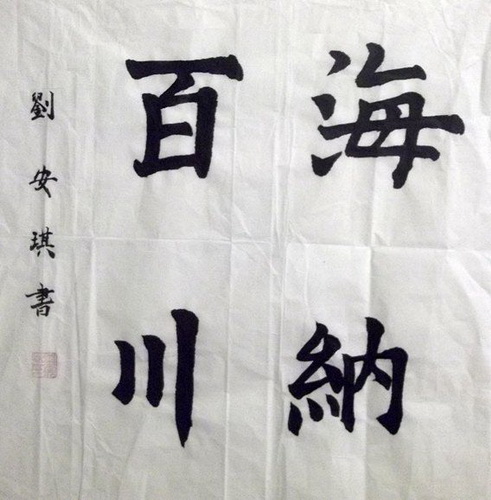 海納
百川
劉安琪書